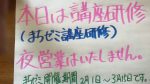 本日は講座研修
(まちゼミ開催)
夜営業はいたしません。
まちゼミ開催期間 2月1日～3月1日です。